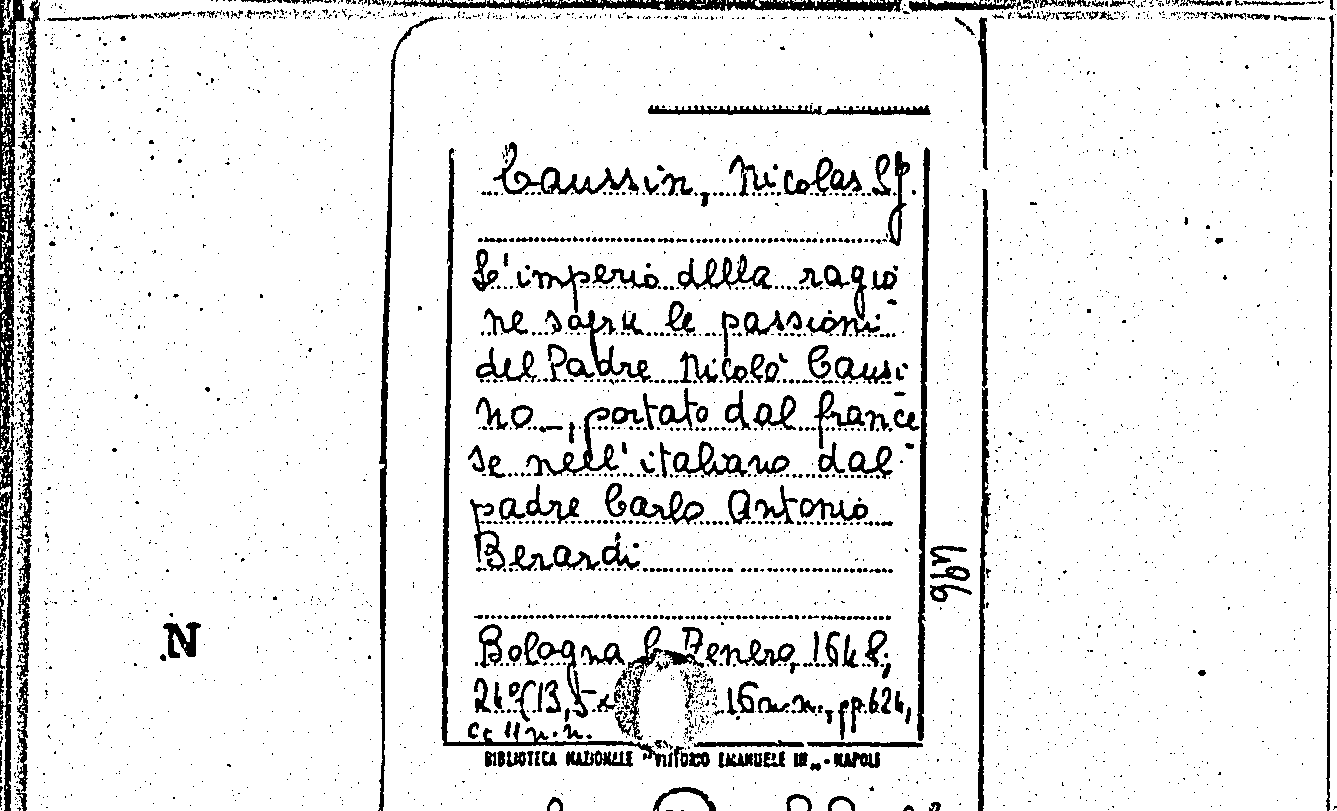 Caussin, Nicolas S.J.
L'imperio della ragio
ne sopra le passioni
del Padre Nicolò Causi
no_, portato dal france
se nell'italiano dal
padre Carlo Antonio
Berardi
496
N
Bologna C. Zenero, 1648,
24° (13,5x 16 n.n., pp. 624,
cc 11 n.n.
BIBLIOTECA NAZIONALE "VITTORIO EMANUELE III" - NAPOLI